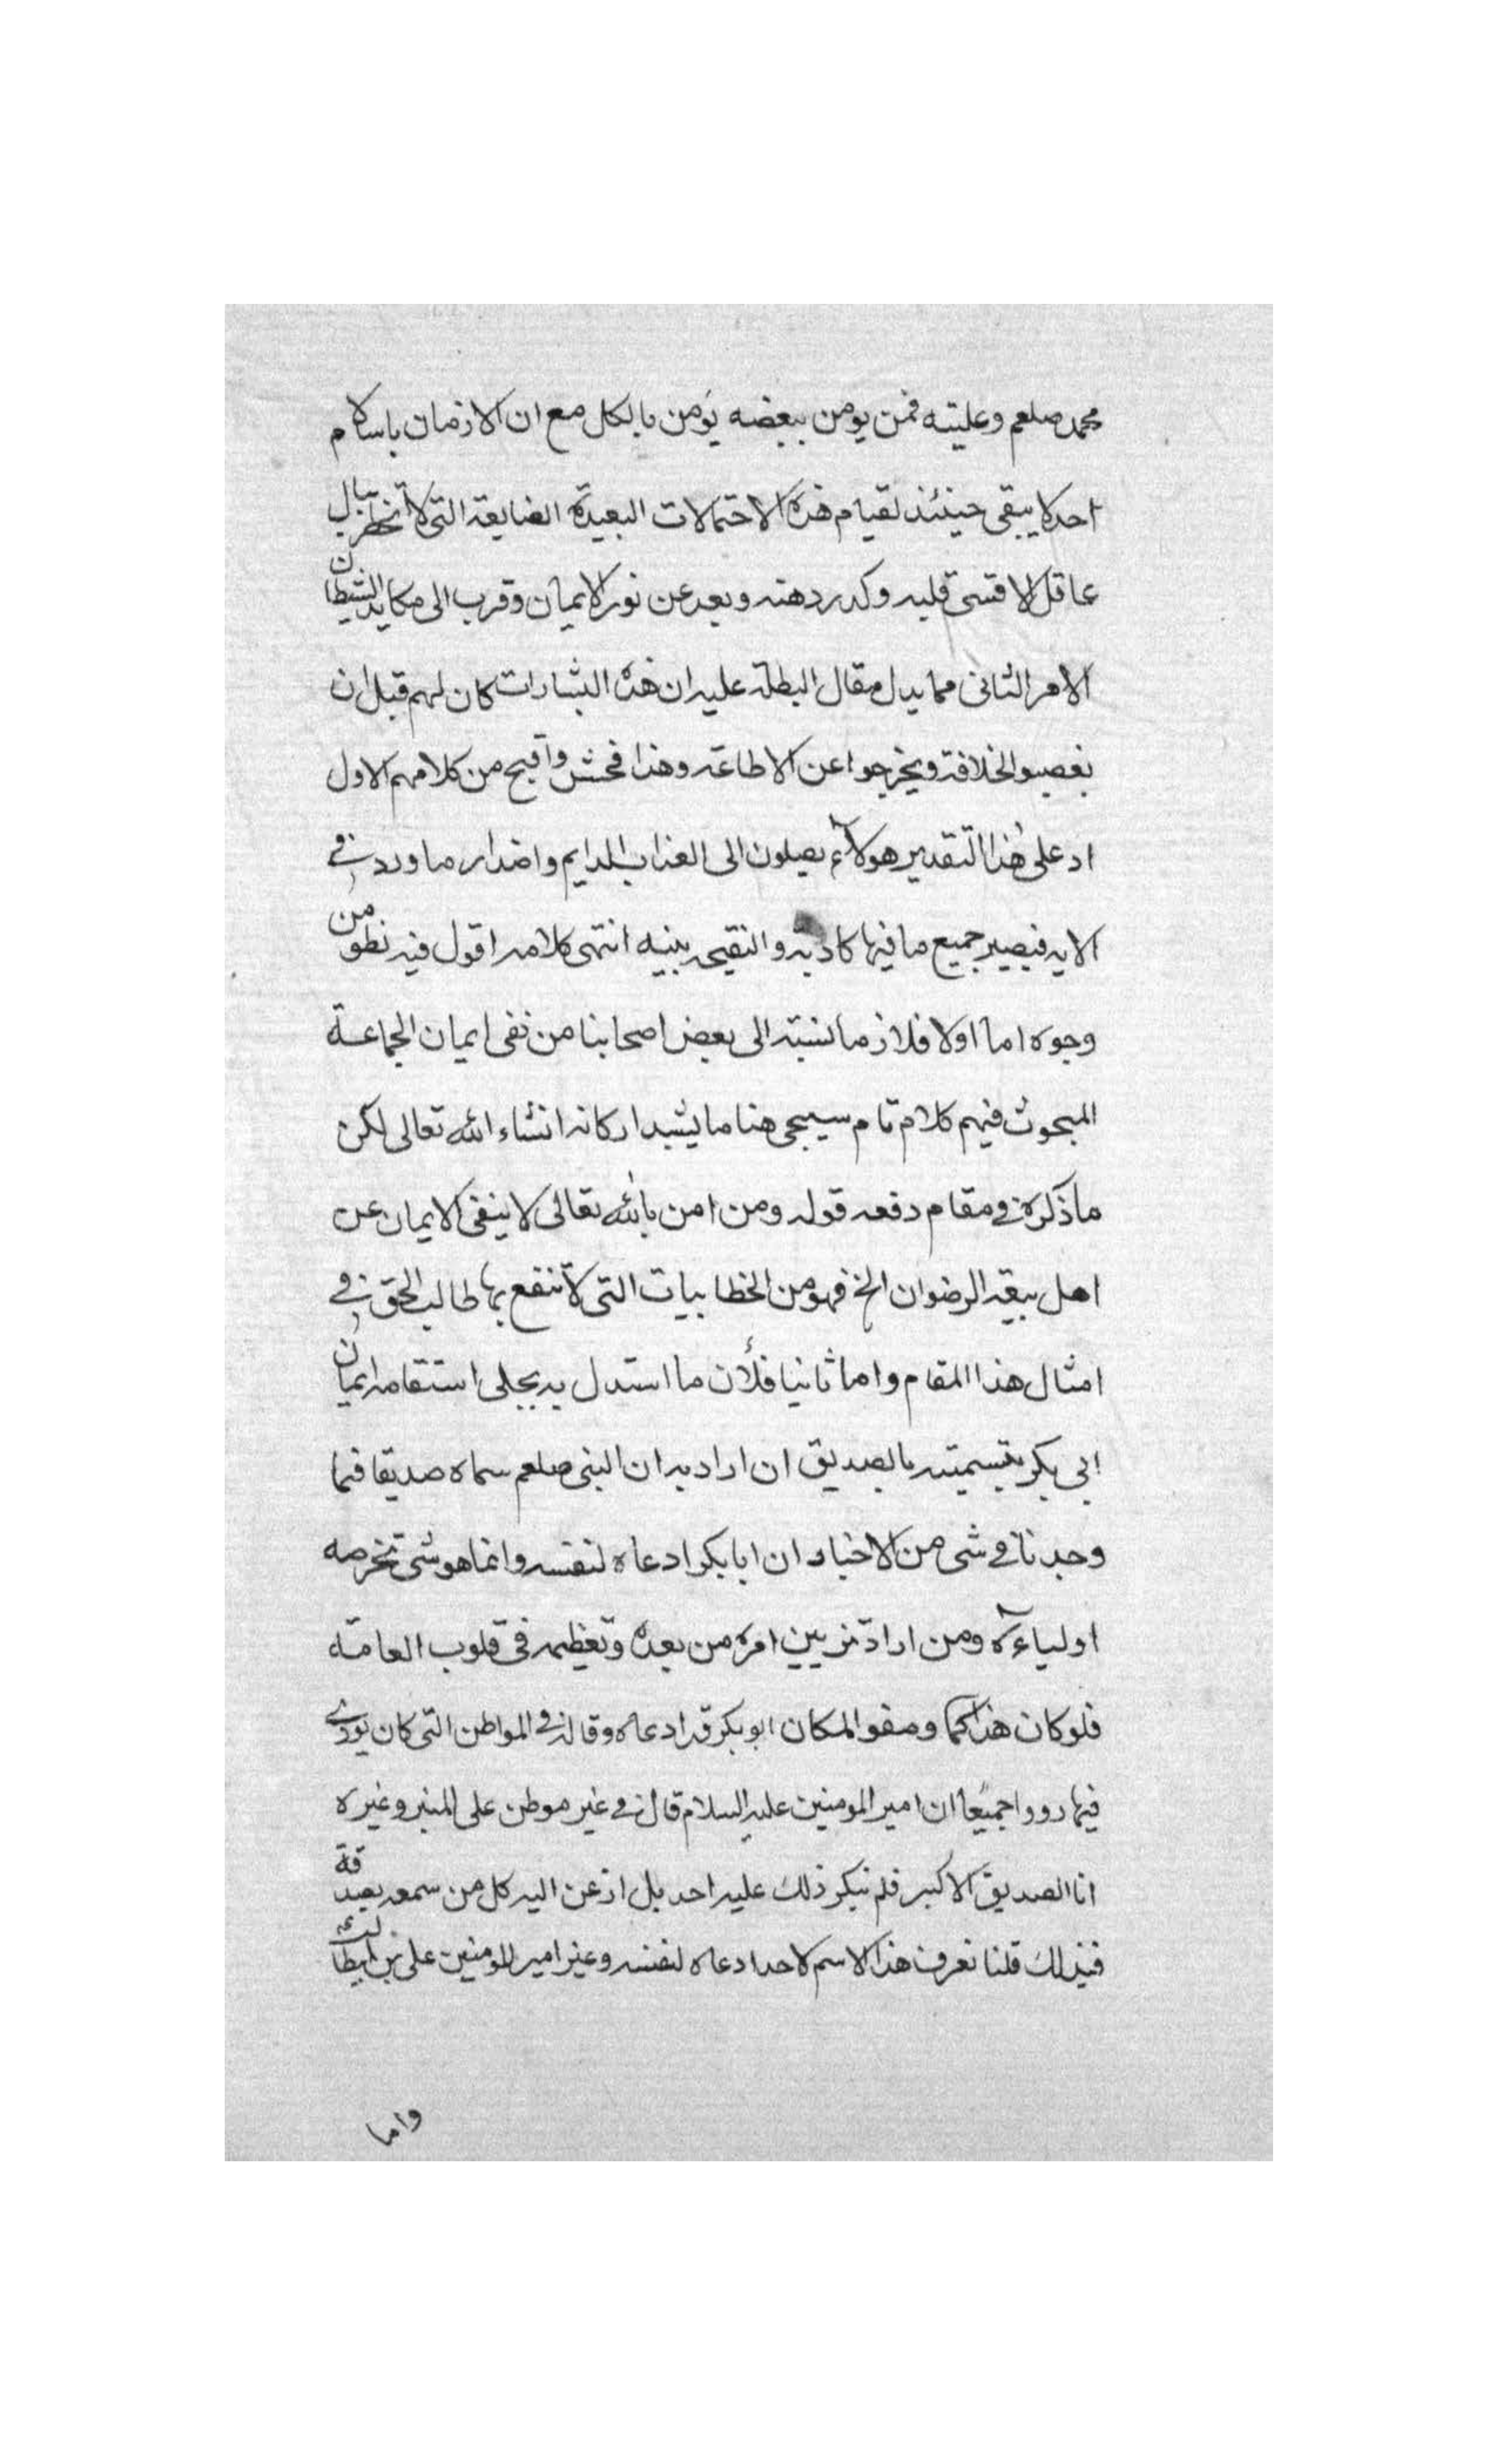 محمد صلعم وعليته فمن يومن ببعضه يؤمن بالكل مع ان الازمان باسلام
احد لا يبقى حينئذ لقيام هذه الاحتمالات البعيدة الضايعة التى لا تخطر ببال
عاقل الا قسى قلبه وكدر دهنه وبعد عن نور الايمان وقرب الى مكايد الشيطان
الامر الثانى مما يدل مقال البطلة عليه ان هذه البشارات كان لهم قبل ان
يغصبوا الخلافة ويخرجوا عن الاطاعة وهذا فحش واقبح من كلامهم الاول
اد على هذا التقدير هولآء يصلون الى العذاب الدايم واضدار ما ورد في
الايه فيصير جميع ما فيها كادبة و النقيحه بينيه انتهى كلامه اقول فيه نظر من
وجوه اما اولا فلان ما نسبته الى بعض اصحابنا من نفى ايمان الجماعة
المبحوث فيهم كلام تام سيجى هنا ما يشيد اركانه انشاء الله تعالى لكن
ما ذكره في مقام دفعه قوله ومن امن بالله تعالى لا ينفى الايمان عن
اهل بيعة الرضوان الخ فهو من الخطابيات التى لا تنفع بها طالب الحق في
امثال هذا المقام واما ثانيا فلأن ما استدل به بجلى استقامه ايمان
ابي بكر بتسميته بالصديق ان اراد به ان النبى صلعم سماه صديقا فما
وجدنا في شى من الاخبار ان ابا بكر ادعاه لنفسه وانما هو شى تخرصه
اولياءه ومن اراد تزيين امره من بعده وتعظيمه فى قلوب العامة
فلو كان هذا كما وصفوا لمكان ابو بكر قد ادعاه وقاله في المواطن التى كان يوذى
فيها رووا جميعًا ان امير المومنين عليه السلام قال في غير موطن على المنبر وغيره
انا الصديق الاكبر فلم ينكر ذلك عليه احد بل اذعن اليه كل من سمعه بصدقة
فبذلك قلنا نعرف هذا الاسم لاحد ادعاه لنفسه وغير امير المومنين على بن ابيطالب
واما